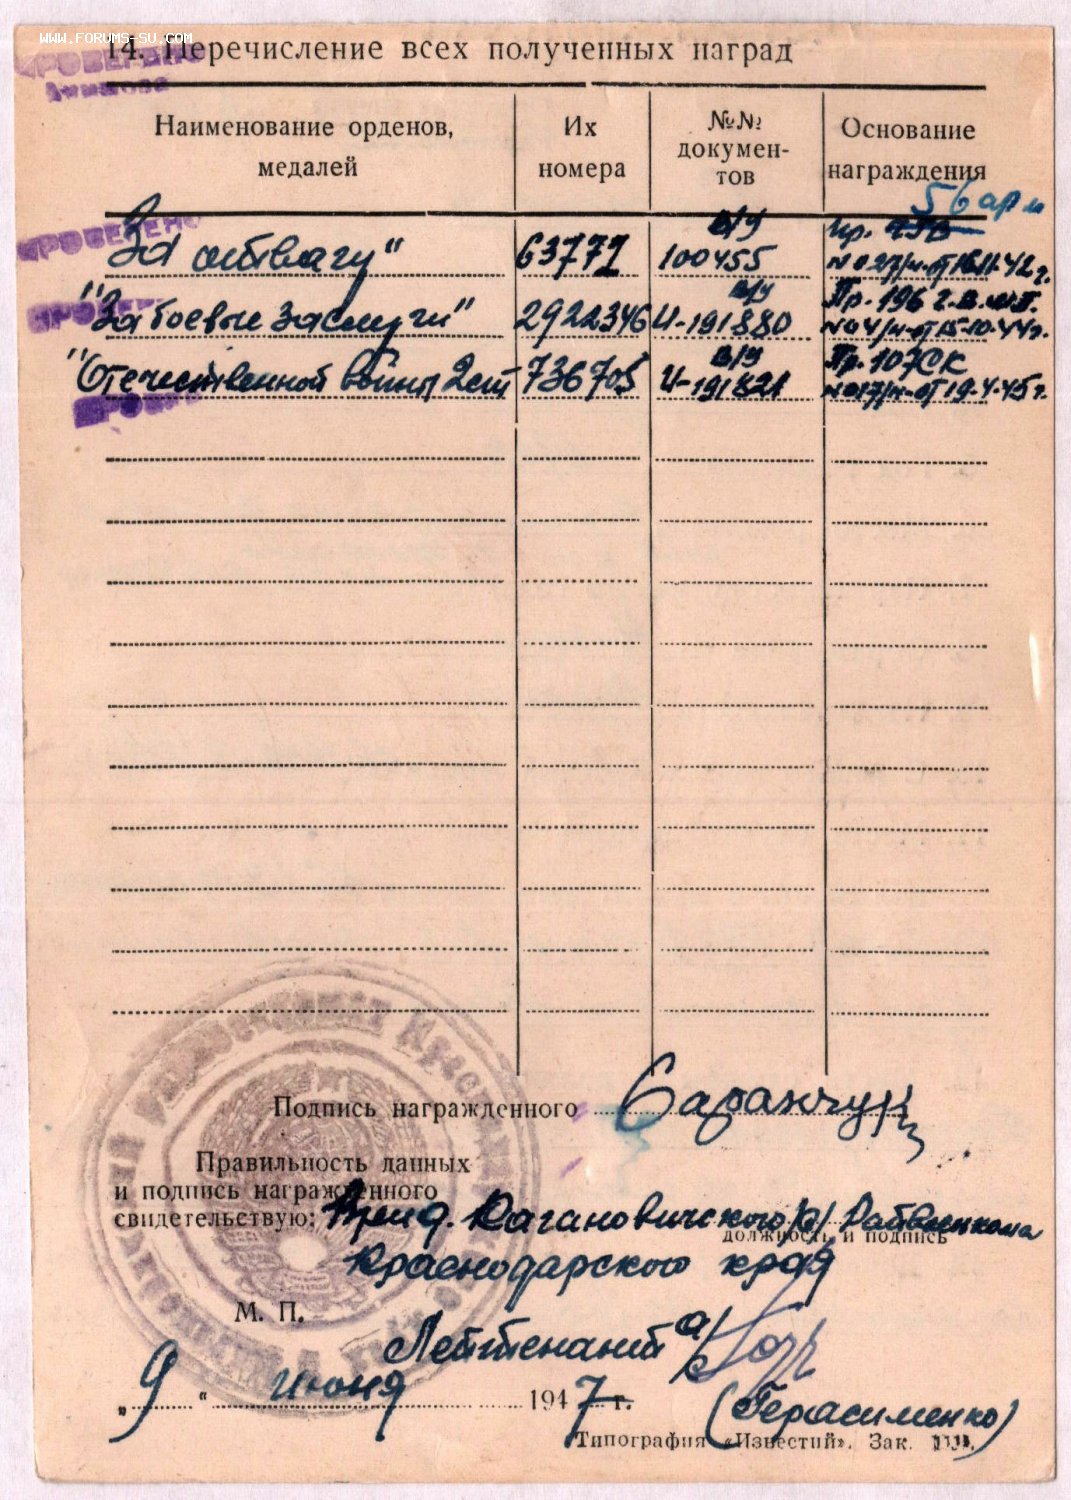 WWW.FORUMS-SU.COM
14. Перечисление всех полученных наград
ПРОВЕРЕНО
Наименование орденов, медалей
Их номера
№№ докумен-тов
Основание награждения
56 арм
ПРОВЕРЕНО
"За отвагу"
63772
в/у 100455
пр.
№027/н от 16.11.42 г.
"За боевые заслуги"
2922346
в/у И-191880
Пр. 196
№04/н-от 15-10-44 г.
"Отечественной войны 2 ст
736705
в/у И-191821
Пр. 10 ЖСК
№017/н-от 19-4-45 г.
Подпись награжденного
Правильность данных
и подпись награжденного
свидетельствую: Кагановичского р/ Райвоенкома
должность и подпись
Краснодарского края
М. П.
Лейтенант а/с
„9" июня 1947 г.
(Герасименко)
Типография «Известий». Зак.